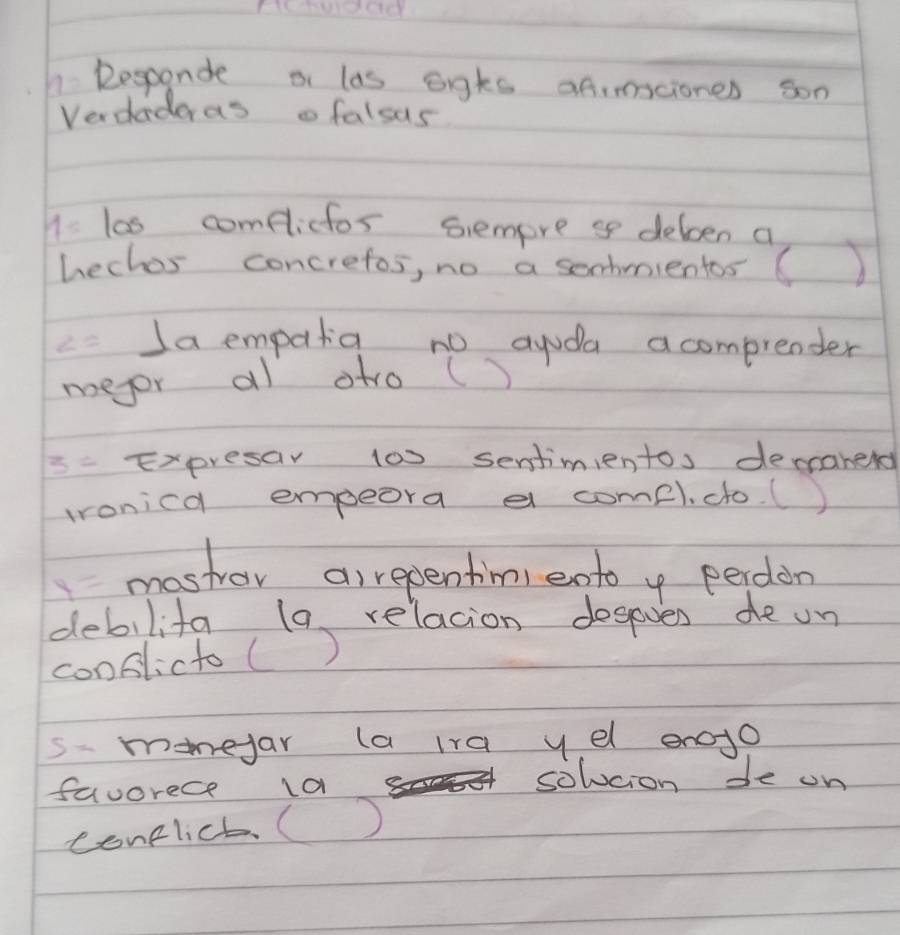 Actividad
1= Responde si las sigtes afirmaciones son
Verdaderas o falsas
1= los comflictos siempre se deben a
hechos concretos, no a sentimientos ( )
2= la empatia no ayuda a comprender
mejor al otro ( )
3= Expresar los sentimientos de manera
ironica empeora el comflicto. ( )
4= mostrar arrepentimiento y perdon
debilita la relacion despues de un
conflicto ( )
5= manejar la ira y el enojo
favorece la solucion de un
conflicto. ( )